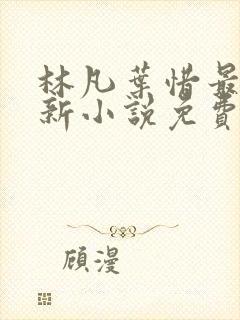 林凡葉惜最
新小說免費
顾漫